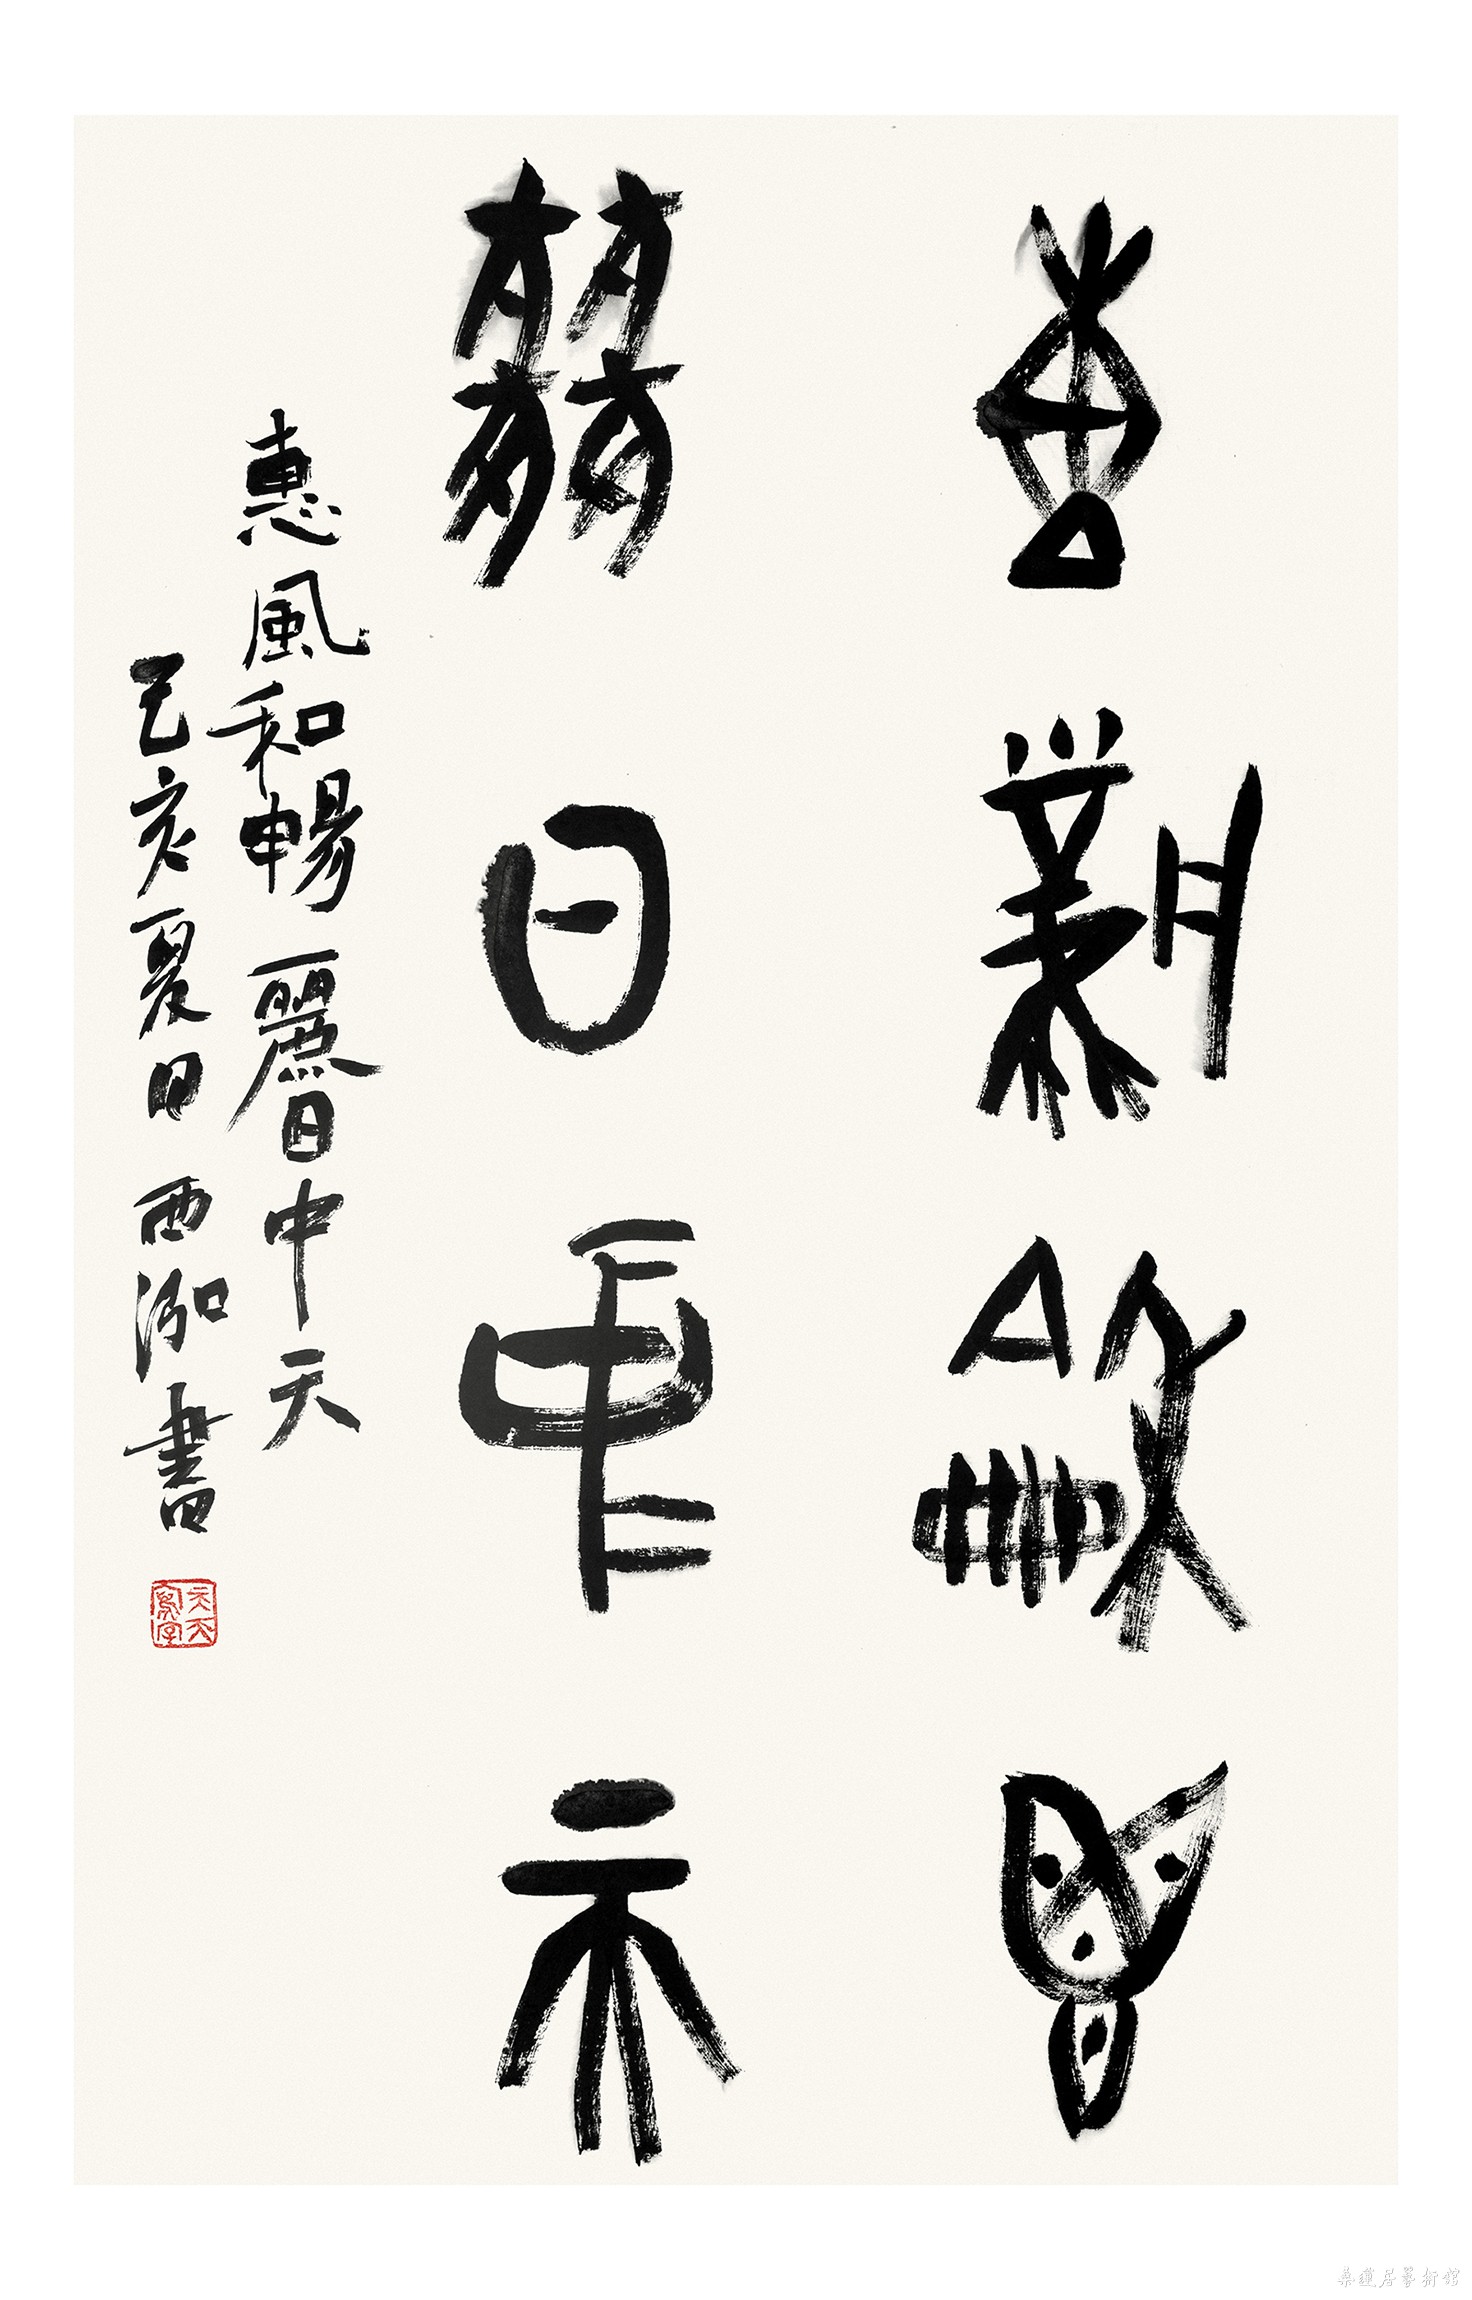 惠風和暢
麗日中天
惠風和暢麗日中天
己亥夏日西泓書
天天
寫字
桑蓮居藝術館